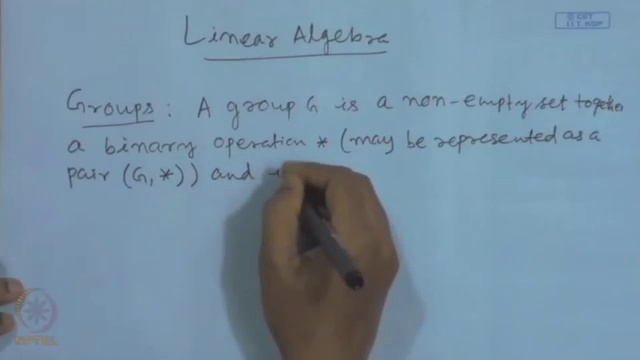 © CET
I.I.T. KGP
Linear Algebra
Groups : A group G is a non-empty set together
a binary operation * (may be represented as a
pair (G, *)) and
NPTEL